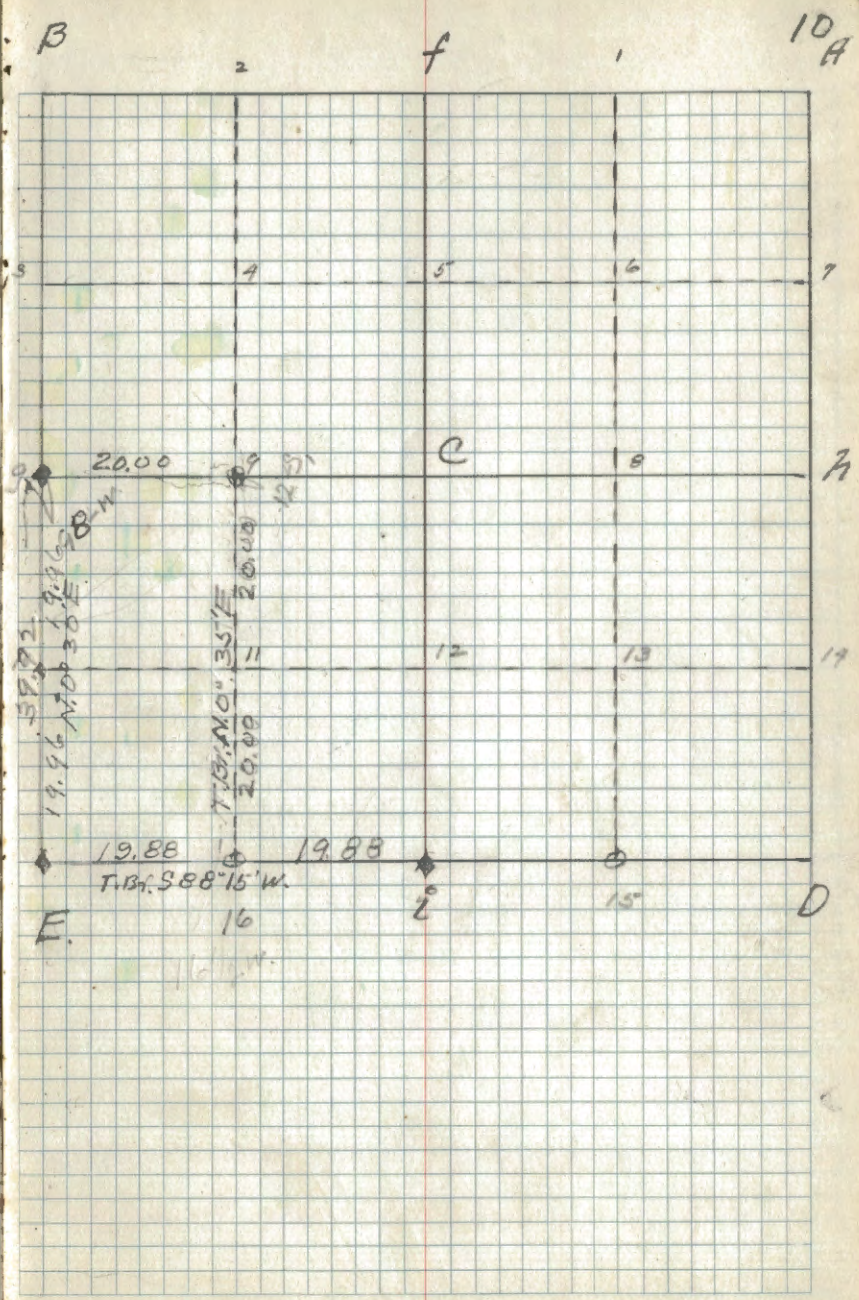 10
B 2 f 1 A
3 4 5 6 7
20.00 9 C 8 h
12 S,
8-W.
39.92
19.96 N.0°30'E 19.96
T.Br. N.0°.35'E
20.00 20.00
11 12 13 14
19.88 19.88
T.Br. S88°15'W.
E. 16 i 15 D